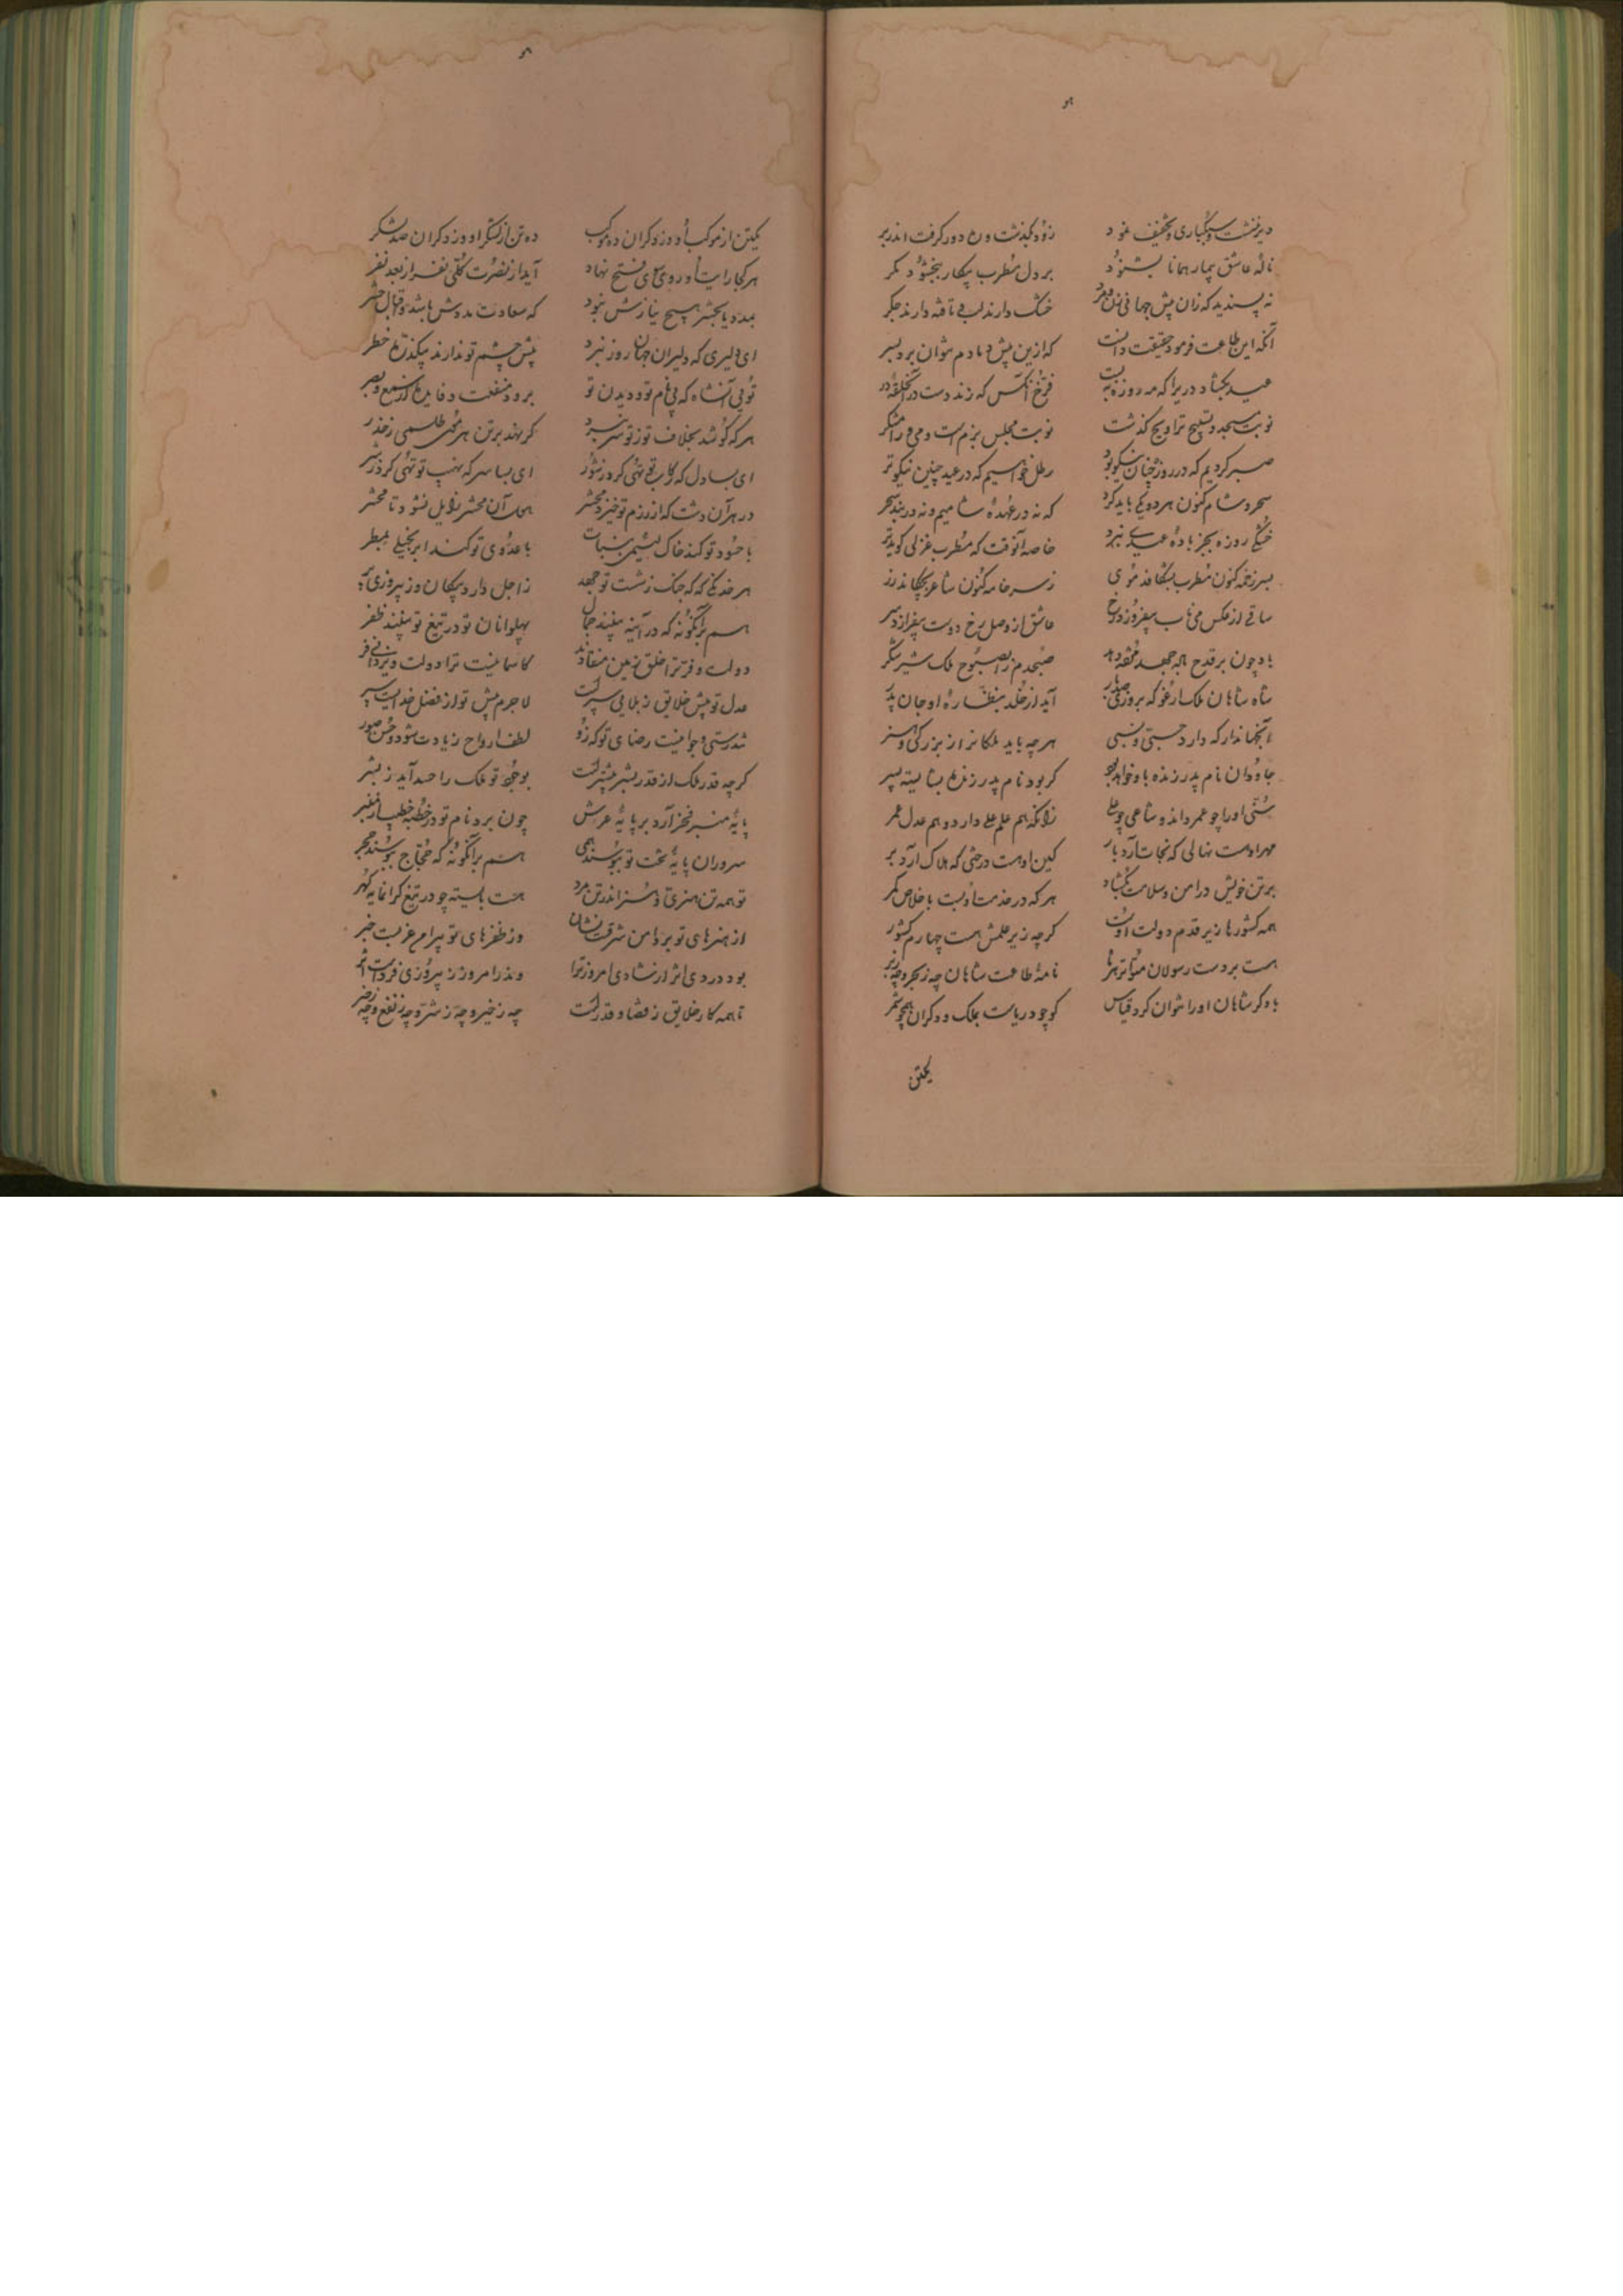 دیر ننشست و سبکباری و تخفیف نمود    زود بگذشت و ره دور گرفت اندر بر
ناله عاشق بیمار همانا بشنود    بر دل مطرب بیکار ببخشود مگر
نه پسندید که زان پیش جهانی    خشک دارند لب و تافته دارند جگر
آنکه این طاعت فرمود حقیقت دانست    که ازین پیش دمادم نتوان برد بسر
عید بگشاد دری را که مه روزه ببست    فرخ آنکس که زند دست در آن حلقه در
نوبت مسجد و تسبیح تراویح گذشت    نوبت مجلس بزم است و می و رامشگر
صبر کردیم که در روزه چنان نیکو بود    رطل خواهیم که در عید چنین نیکوتر
سحر و شام کنون هر دو یکی باید کرد    که نه در عهده شامیم و نه در بند سحر
خشکی روزه بجز باده عیدی نبرد    خاصه آنوقت که مطرب غزلی گوید تر
بسر زخمه کنون مطرب بشکافد موی    ز سر خامه کنون شاعر بچکاند زر
ساقی از عکس می ناب بیفروزد رخ    عاشق از وصل رخ دوست بیفرازد سر
باد چون بر قدح لاله جهد    صبحدم را بصبوح ملک شیر شکر
شاه شاهان ملک ارغو که بروزی    آید از خلد بنظاره او جان پدر
آنجهاندار که دارد حسبی و نسبی    هر چه باید ملکانرا ز بزرگی و هنر
جاودان نام پدر زنده باو خواهد بود    گر بود نام پدر زنده بشایسته پسر
سنی او را چو عمر داند و شاعی چو علی    زانکه هم علم علی دارد و هم عدل عمر
مهر او هست نهالی که نجات آرد بار    کین او هست درختی که هلاک آرد بر
بر تن خویش در امن و سلامت بگشاد    هر که در خدمت او بست باخلاص کمر
همه کشورها زیر قدم دولت اوست    گرچه زیر علمش هست چهارم کشور
هست بر دست رسولان متواتر بر ما    نامه طاعت شاهان چه ز بحر و چه ز بر
با دگر شاهان او را نتوان کرد قیاس    کو چو دریاست بملک و دگران همچو شمر
یکتن
یکتن از موکب او وز دگران ده موکب    ده تن از لشکر او وز دگران صد لشکر
هر کجا رایت او روی سوی فتح نهاد    آید از نصرت کلی نفر از بعد نفر
بمدد یا بحشر هیچ نیازش نبود    که سعادت مددش باشد و اقبال حشر
ای دلیری که دلیران جهان روز نبرد    پیش چشم تو ندارند بیک ذره خطر
توئی آنشاه که بی نام تو و دیدن تو    برود منفعت و فایده از سمع و بصر
هر که کوشد بخلاف تو ز تو سر نبرد    گر نهد بر تن هر موی طلسمی ز حذر
ای بسا دل که تهی کرد ز شور    ای بسا سر که نهیب تو تهی کرد ز شر
در هر آن دشت که از رزم تو خیزد محشر    هول آن محشر زایل نشود تا محشر
با حسود تو کند خاک لئیمی بنبات    با عدوی تو کند ابر بخیلی بمطر
هر خدنگی که که جنگ ز شست تو جهد    ز اجل دارد پیکان و ز پیروزی پر
هم بر آنگونه که در آینه بینند جمال    پهلوانان تو در تیغ تو بینند ظفر
دولت و فر ترا خلق زمین منقادند    کآسمانیست ترا دولت و یزدانی فر
عدل تو پیش خلایق ز بلایی سپر است    لاجرم پیش تو از فضل خدایست سپر
تندرستی و جوانیست رضای تو که زو    لطف ارواح زیادت شود و حسن صور
گرچه قدر ملک از قدر بشر بیشتر است    بوجود تو ملک را حسد آید ز بشر
پایه منبر فخر آرد بر پایه عرش    چون برد نام تو در خطبه خطیب از منبر
سروران پایه تخت تو ببوسند همی    هم بر آنگونه که حجاج ببوسند حجر
تو همه تن هنری و هنر اندر تن مرد    هست بایسته چو در تیغ گرانمایه گهر
از هنرهای تو بر دامن شرقست نشان    وز ظفرهای تو پیرامن غربست خبر
بود در دی اثر از شادی امروز ترا    وندر امروز ز پیروزی فرداست اثر
تا همه کار خلایق ز قضا و قدر است    چه ز خیر و چه ز شر و چه ز نفع و چه ز ضر